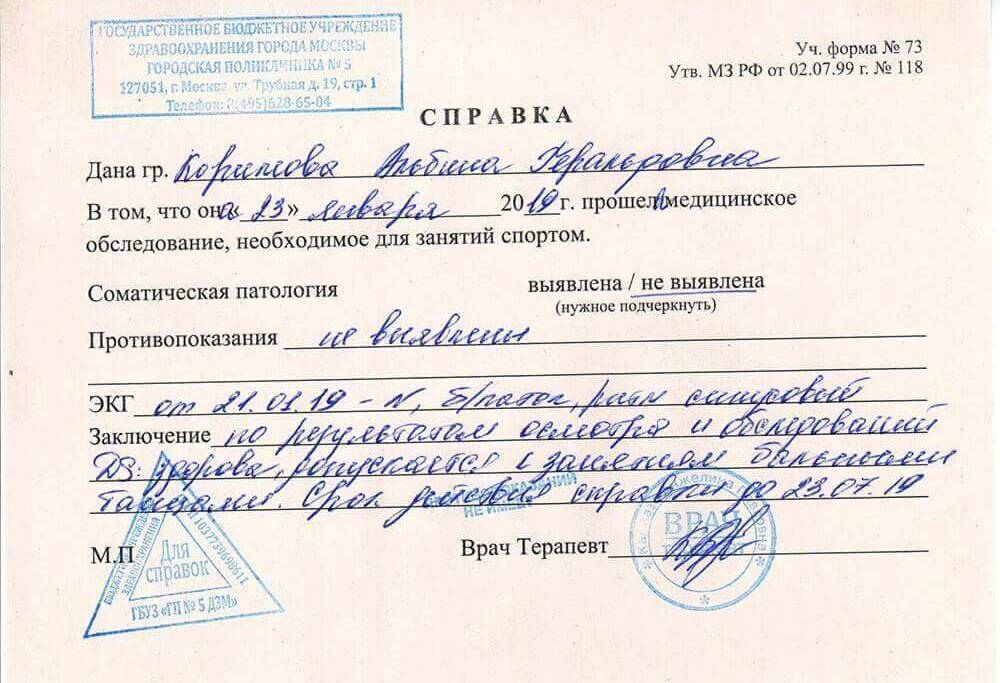 ГОСУДАРСТВЕННОЕ БЮДЖЕТНОЕ УЧРЕЖДЕНИЕ
ЗДРАВООХРАНЕНИЯ ГОРОДА МОСКВЫ
ГОРОДСКАЯ ПОЛИКЛИНИКА № 5
127051, г. Москва ул. Трубная д. 19, стр. 1
Телефон: 8(495)628-65-04
Уч. форма № 73
Утв. МЗ РФ от 02.07.99 г. № 118
СПРАВКА
Дана гр. Альбина Геральдовна
В том, что она «23» января 2019 г. прошел медицинское
обследование, необходимое для занятий спортом.
Соматическая патология выявлена / не выявлена
(нужное подчеркнуть)
Противопоказания не выявлены
ЭКГ от 21.01.19 - N, б/патол, ритм синусовый
Заключение по результатам осмотра и обследований
DS: здорова, допускается к занятиям бальными
танцами. Срок действия справки до 23.07.19
НЕ ИМЕЕТ
М.П
Врач Терапевт
ВРАЧ
Для
справок
ГБУЗ «ГП № 5 ДЗМ»